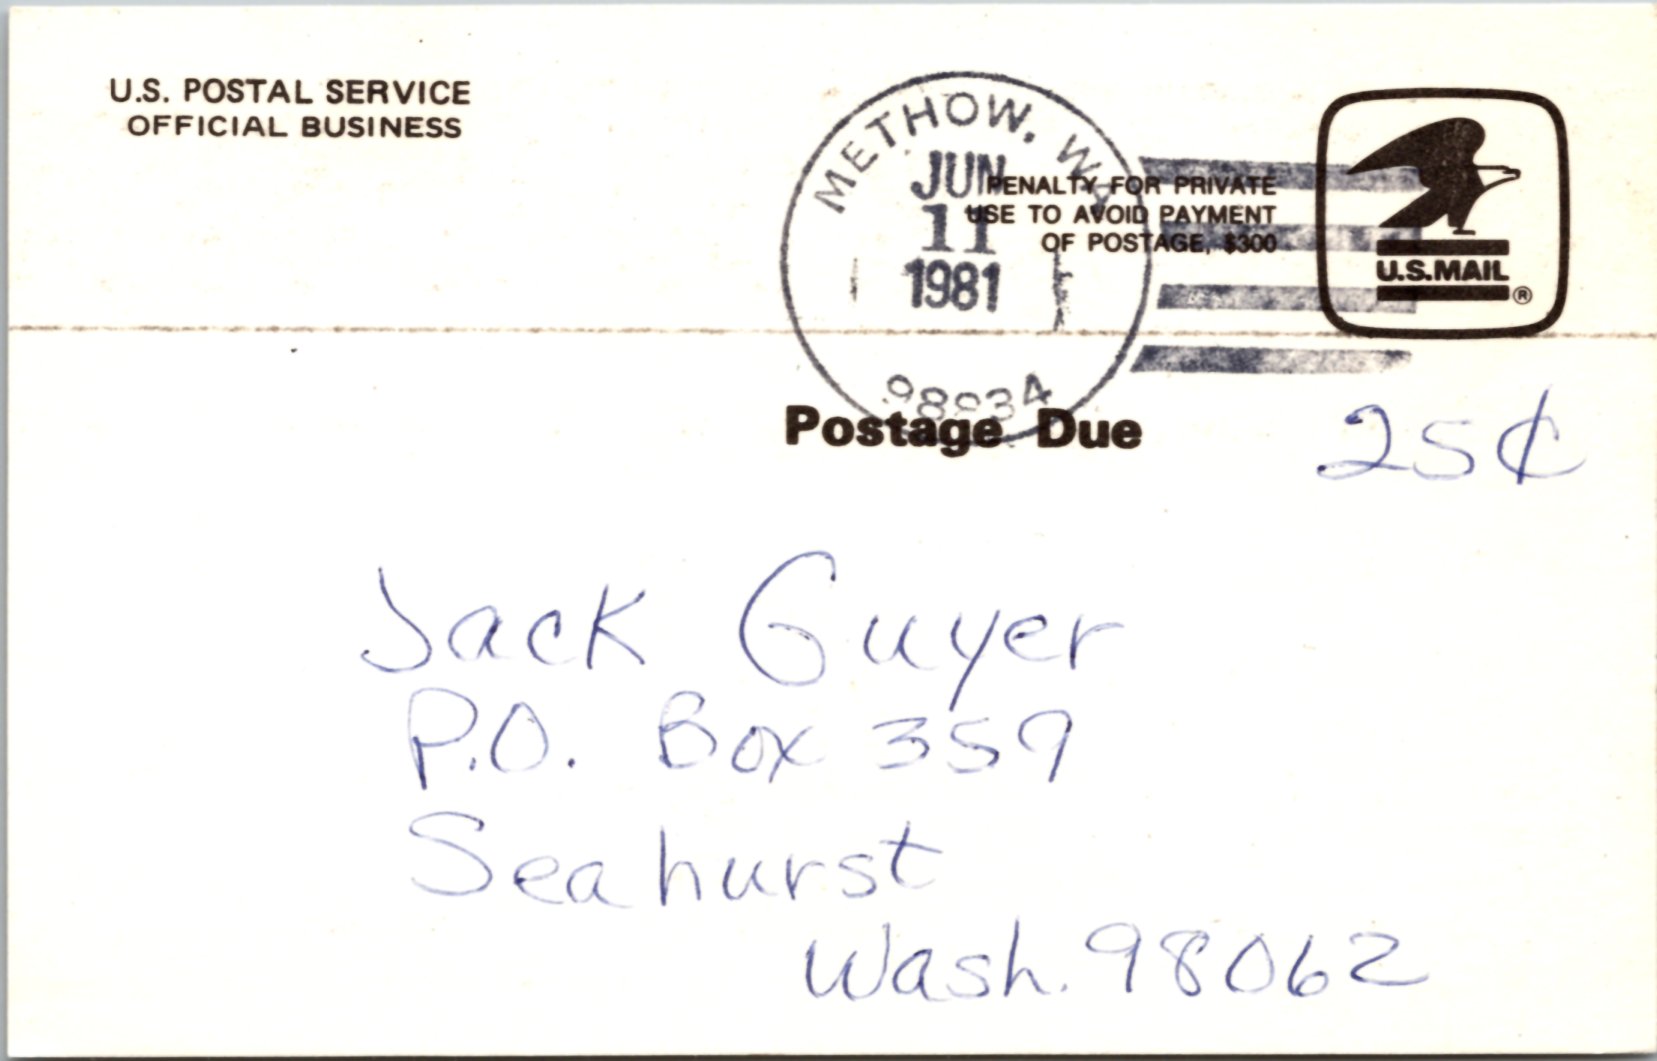 U.S. POSTAL SERVICE
OFFICIAL BUSINESS
METHOW, WA
JUN
11
1981
98834
PENALTY FOR PRIVATE
USE TO AVOID PAYMENT
OF POSTAGE, $300
U.S.MAIL
®
Postage Due 25¢
Jack Guyer
P.O. Box 359
Seahurst
Wash. 98062